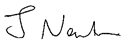 J Newton